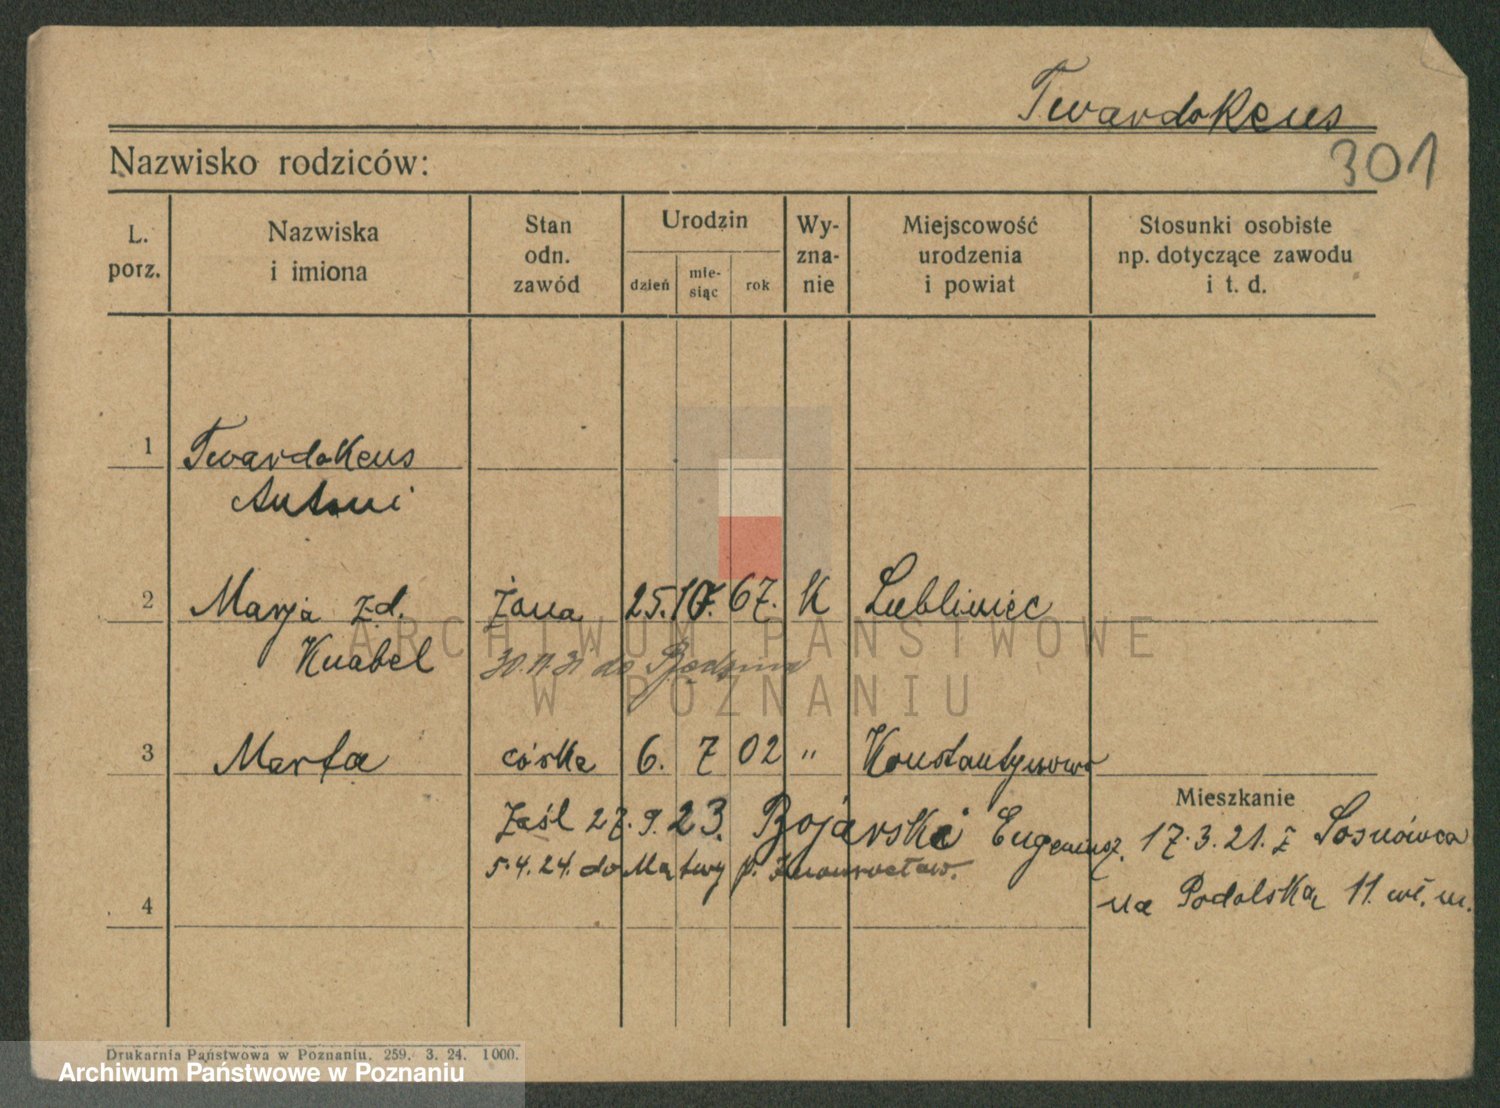 Twardokeus
301
Nazwisko rodziców:
L. porz.
Nazwiska i imiona
Stan odn. zawód
Urodzin
dzień
mie-siąc
rok
Wy-zna-nie
Miejscowość urodzenia i powiat
Stosunki osobiste np. dotyczące zawodu i t. d.
1 Twardokeus
Antoni
2 Marja z d. żona 25. 10. 67. K Lubliniec
Knabel 30.11.31 do Będzina
3 Marta córka 6. 7 02 " Konstantynowo
Mieszkanie
Zaśl 27. 9. 23. Bojarski Eugeniusz. 17.3.21. z Sosnówca
5.4.24. do Mątwy p. Inowrocław.
na Podolską 11. wł. m.
4
ARCHIWUM PAŃSTWOWE
W POZNANIU
Drukarnia Państwowa w Poznaniu. 259. 3. 24. 1000.
Archiwum Państwowe w Poznaniu